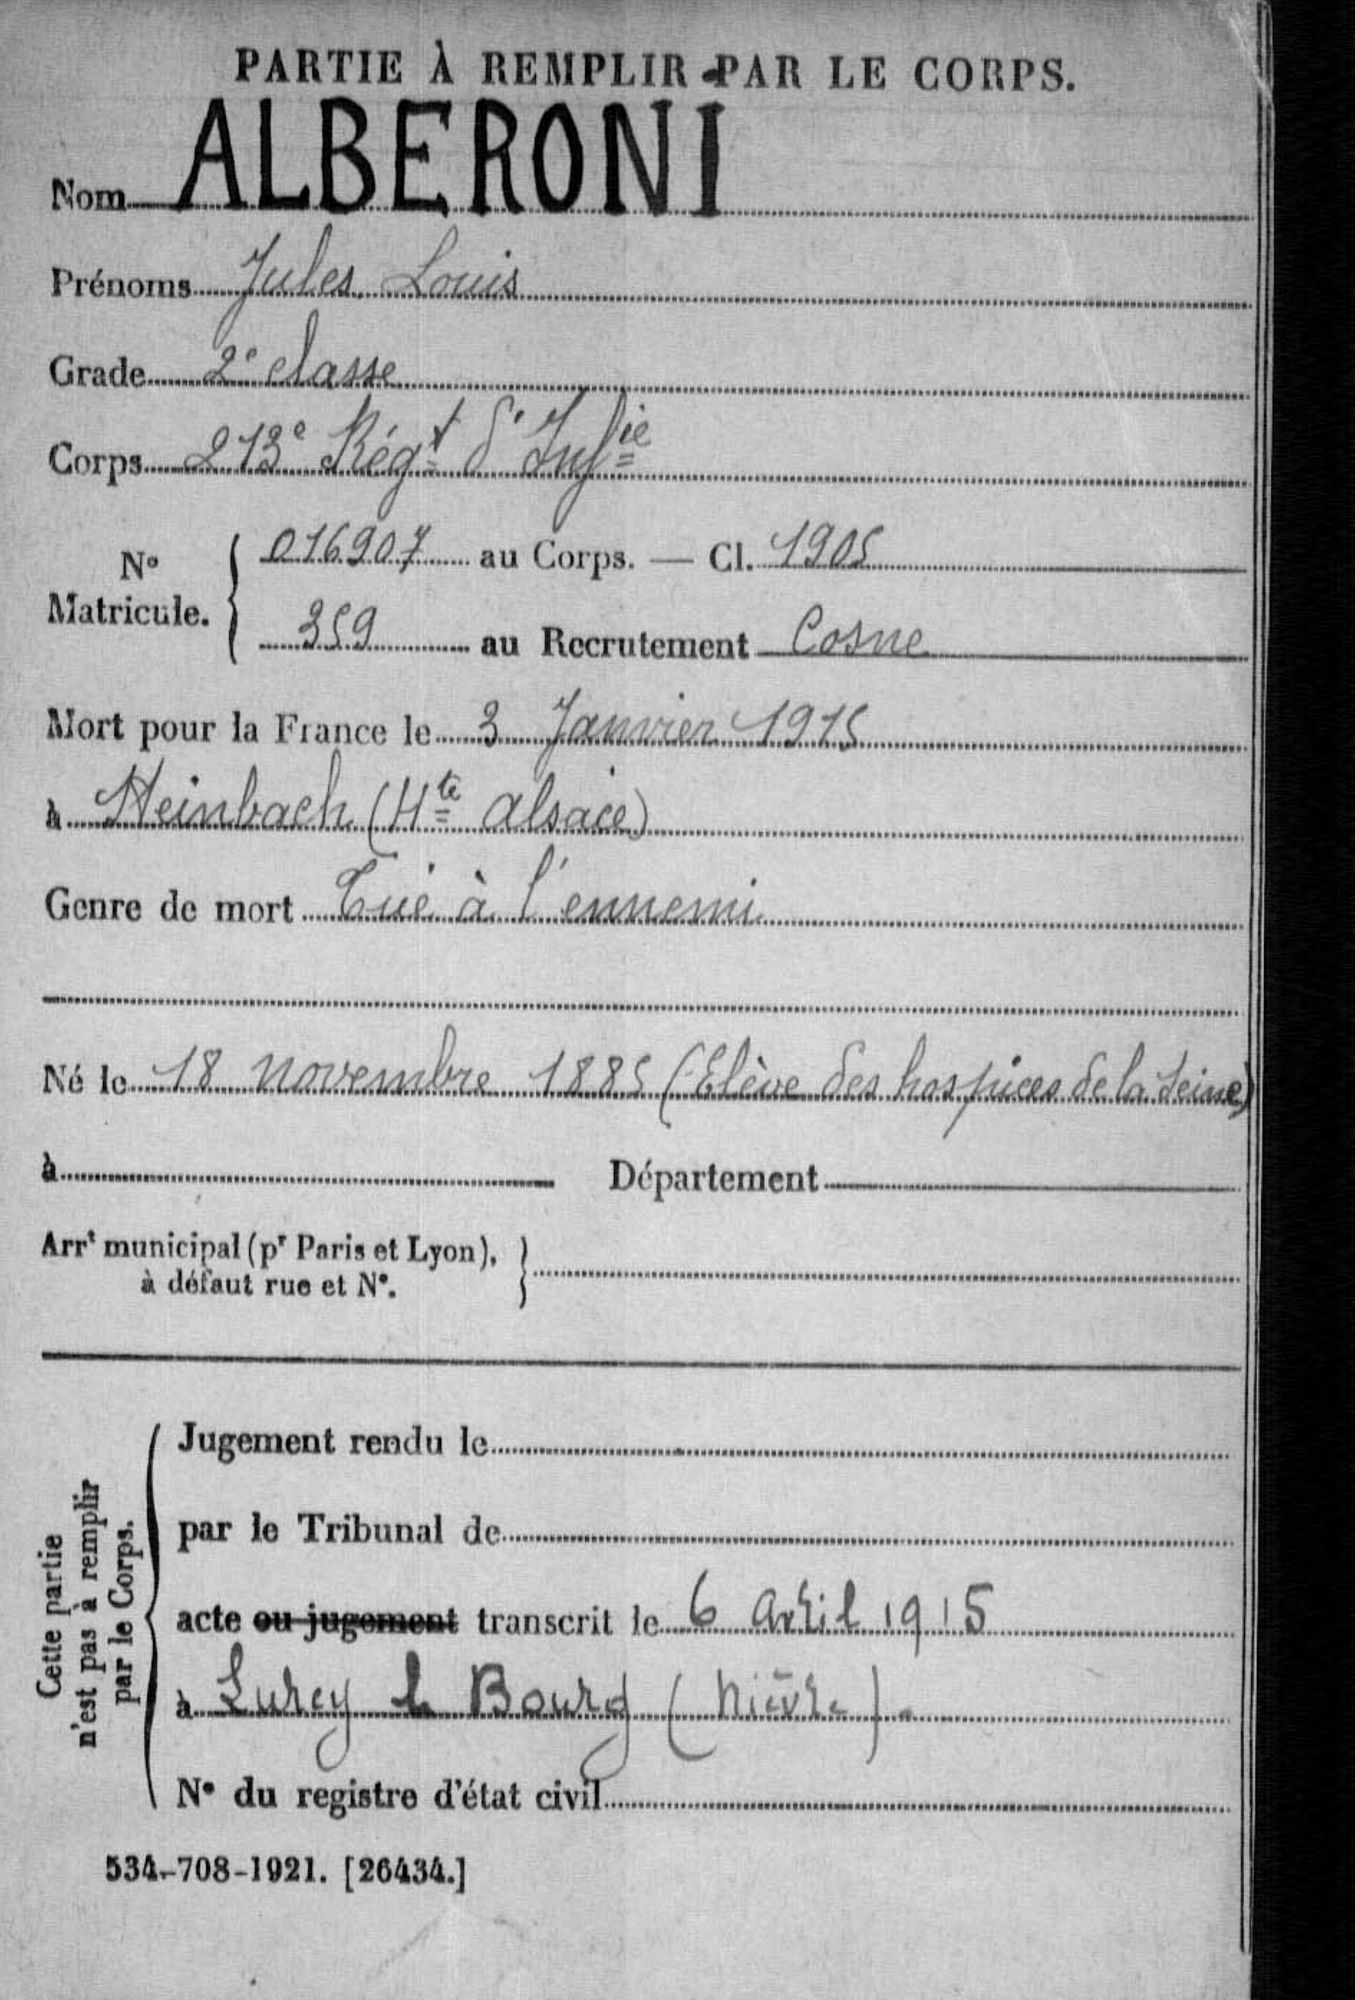 PARTIE À REMPLIR PAR LE CORPS.
Nom ALBERONI
Prénoms Jules Louis
Grade 2e classe
Corps 213e Régt d'Infie
No Matricule. { 016907 au Corps. — Cl. 1905
359 au Recrutement Cosne
Mort pour la France le 3 Janvier 1915
à Steinbach (Hte Alsace)
Genre de mort Tué à l'ennemi
Né le 18 novembre 1885 (Elève des hospices de la Seine)
à Département
Arrt municipal (pr Paris et Lyon), }
à défaut rue et No.
Cette partie
n'est pas à remplir
par le Corps.
Jugement rendu le
par le Tribunal de
acte ou jugement transcrit le 6 avril 1915
à Lurcy le Bourg (Nièvre).
No du registre d'état civil
534-708-1921. [26434.]